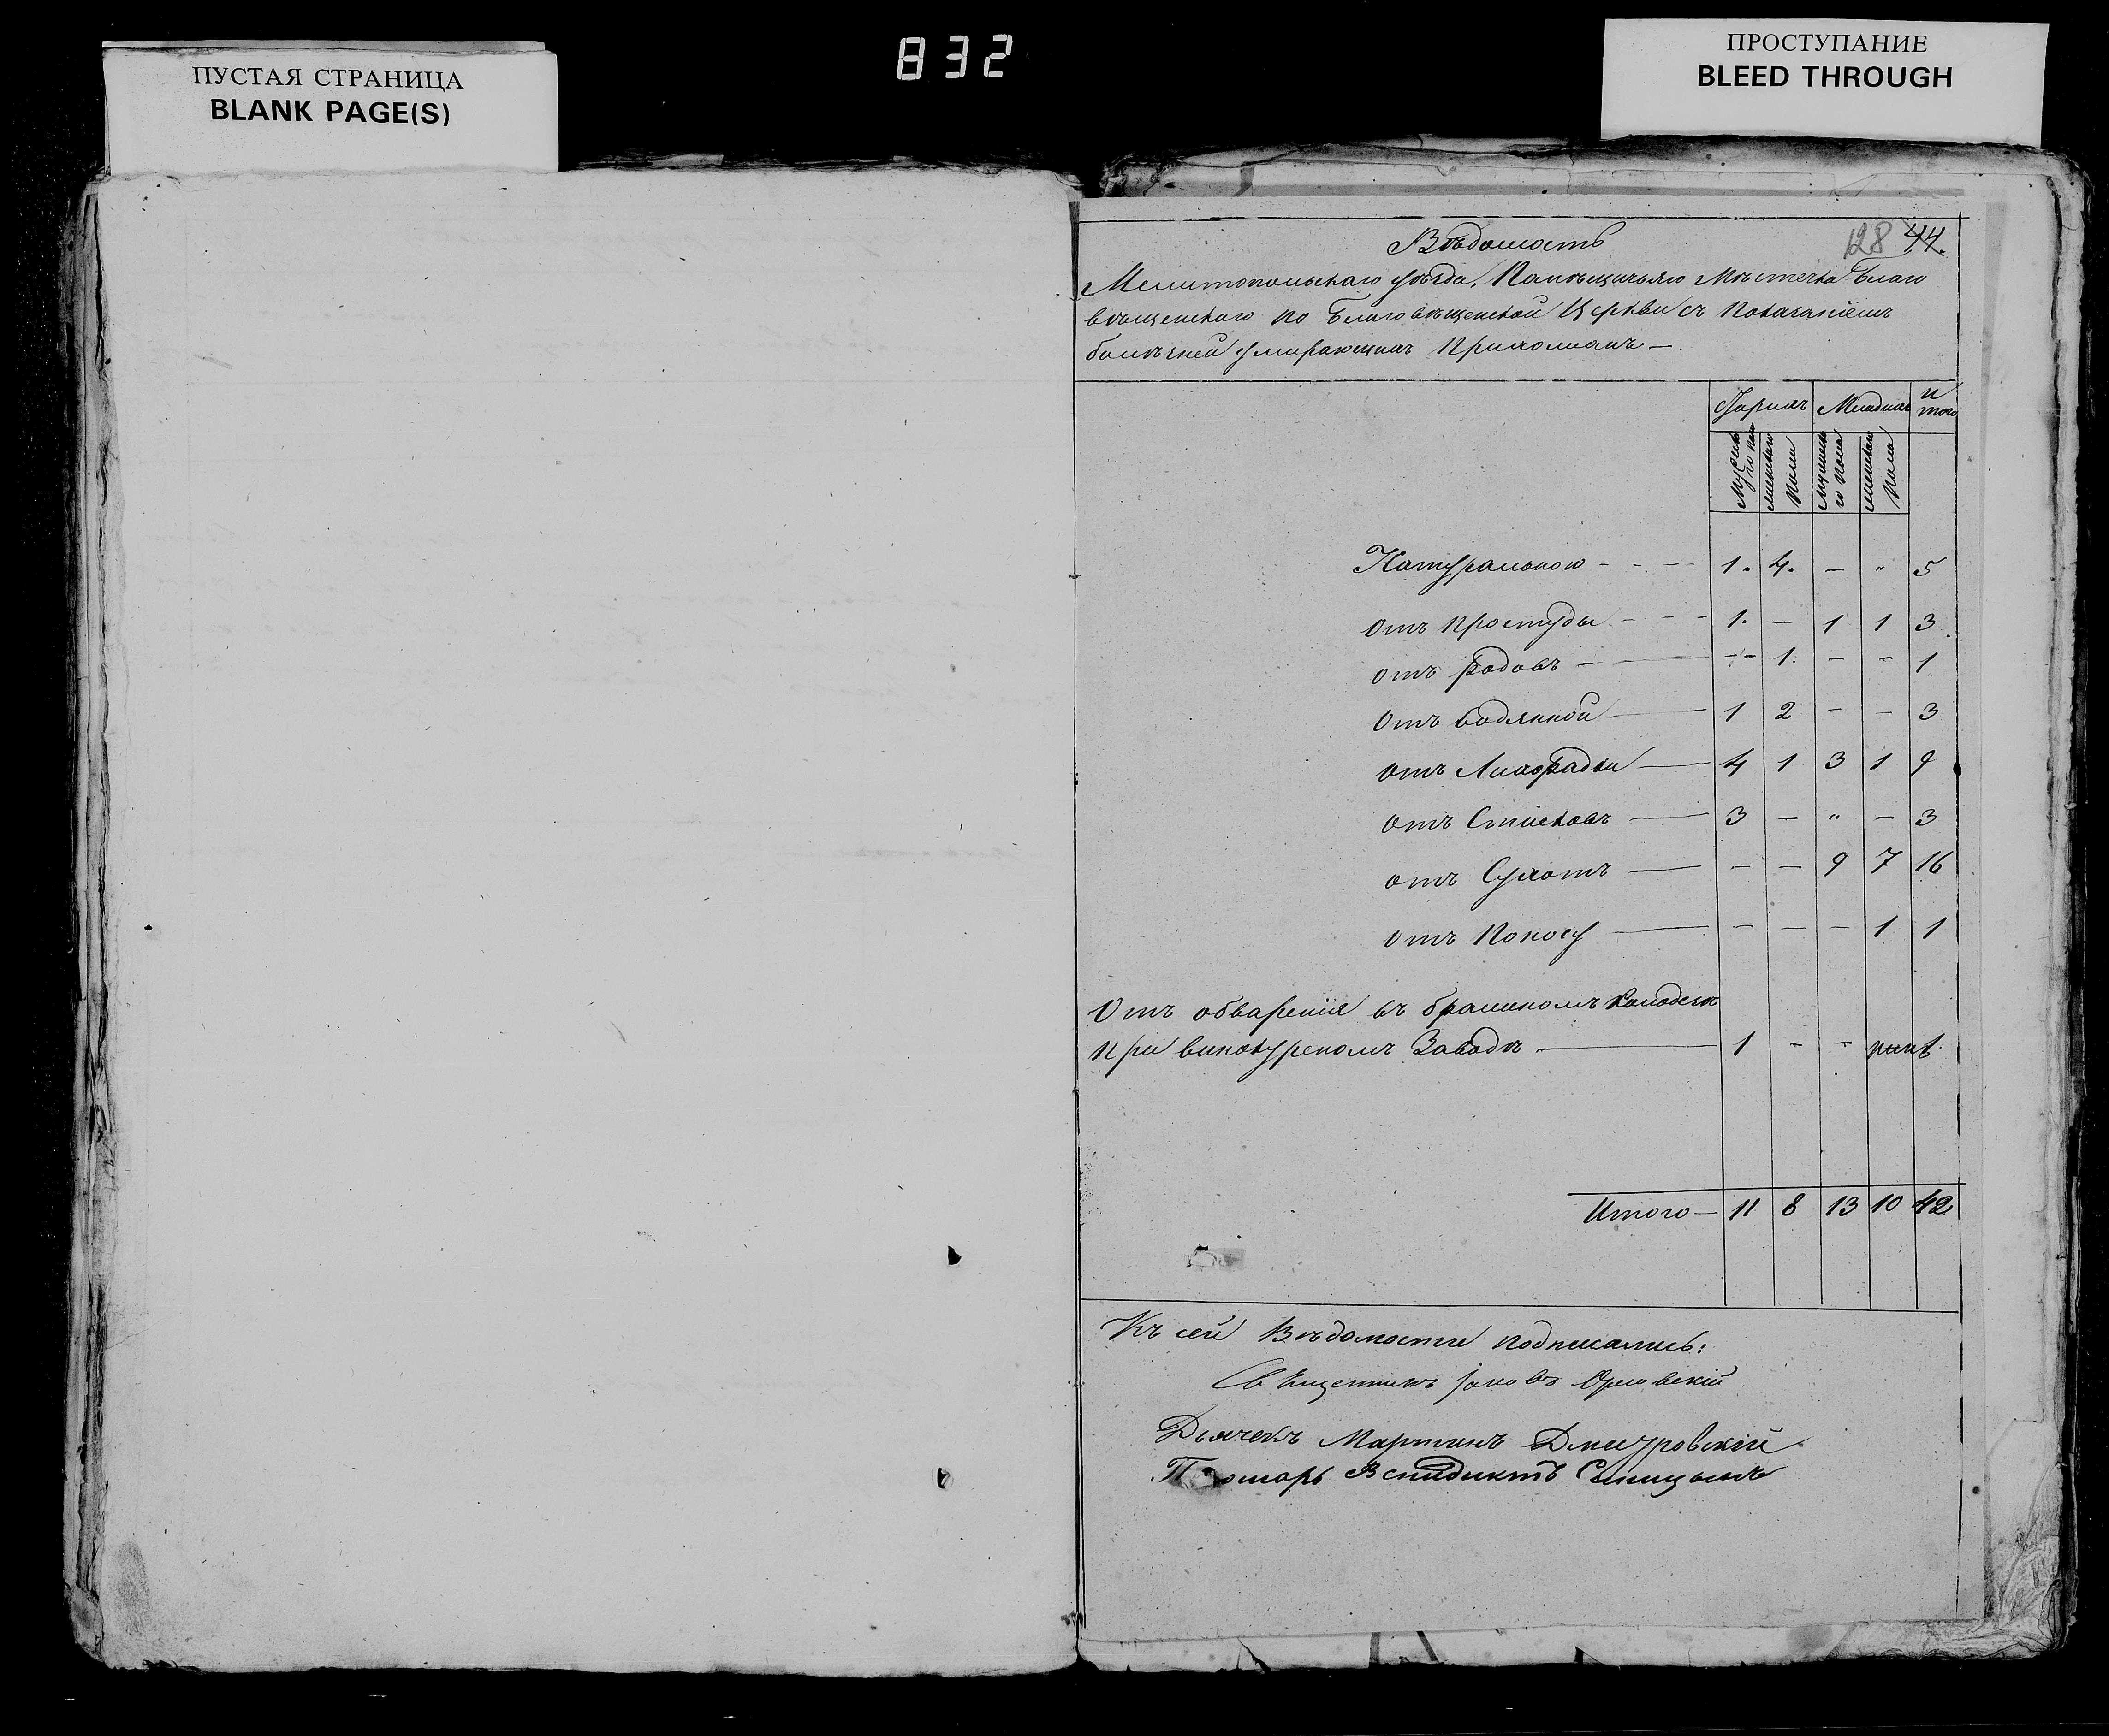 ПУСТАЯ СТРАНИЦА
BLANK PAGE(S)
832
ПРОСТУПАНИЕ
BLEED THROUGH
128 44.
Вѣдомость
Мелитопольскаго уѣзда, Помѣщичьяго Мѣстечка Благо
вѣщенскаго по Благовѣщенской Церкви съ Показаніемъ
болѣзней умирающихъ Прихожанъ —
Старыхъ Младыхъ И
того
Мужеска
го пола женскаго
Пола Мужеска
го Пола женскаго
Пола
Натуральною - - - 1. 4. — " 5
Отъ Простуды - - - 1. — 1 1 3
отъ Родовъ - — - - 1. - - 1
Отъ водянной — 1 2 - - 3
отъ Лихорадки — 4 1 3 1 9
отъ — 3 — " — 3
отъ Сухотъ — - — 9 7 16
отъ Поносу — - — — 1 1
Отъ обваренія въ бражномъ колодезѣ
при винокуренномъ Заводѣ — 1 - - 1.
Итого — 11 8 13 10 42
Къ сей Вѣдомости подписались:
Священникъ Іаковъ Орловскій
Дьячекъ Мартинъ Дмитровскій
Пономарь Венидиктъ